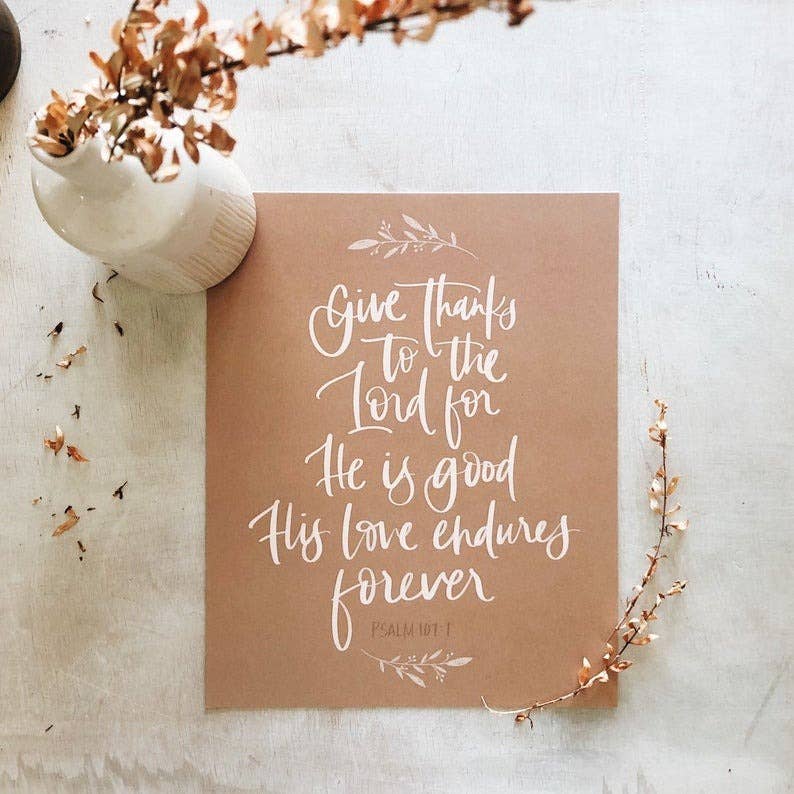 Give Thanks
to the
Lord for
He is good
His love endures
forever
PSALM 107:1